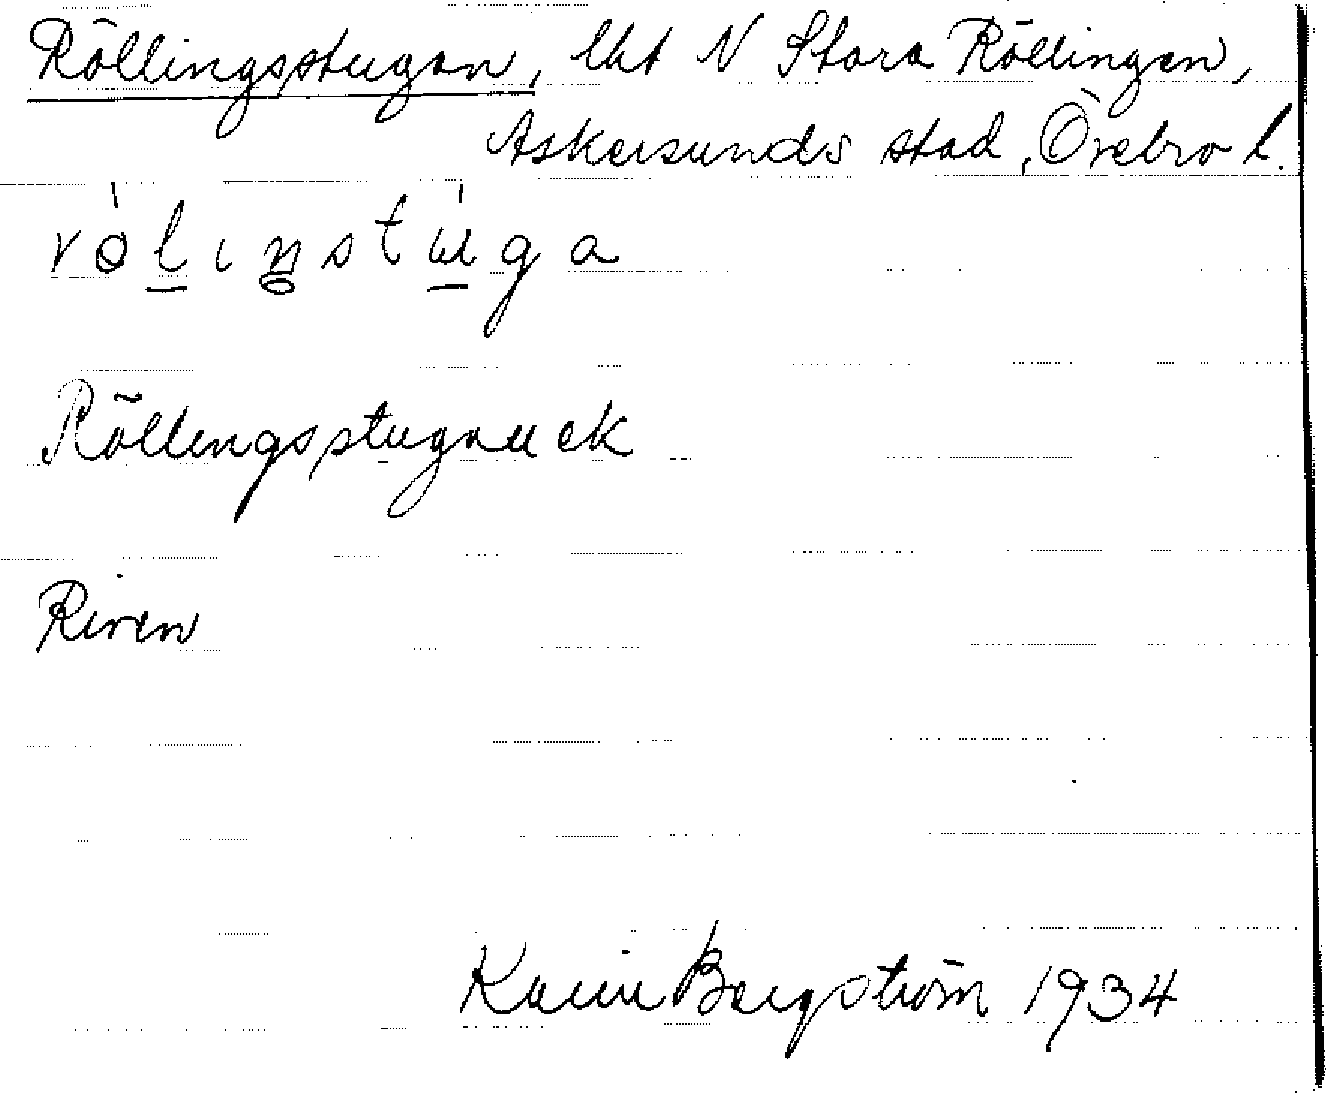 Röllingsstugan, lht N Stora Röllingen,
Askersunds stad, Örebro l.
rö̀lıŋstùga
Röllingsstugan ek
Riven
Karin Bergström 1934